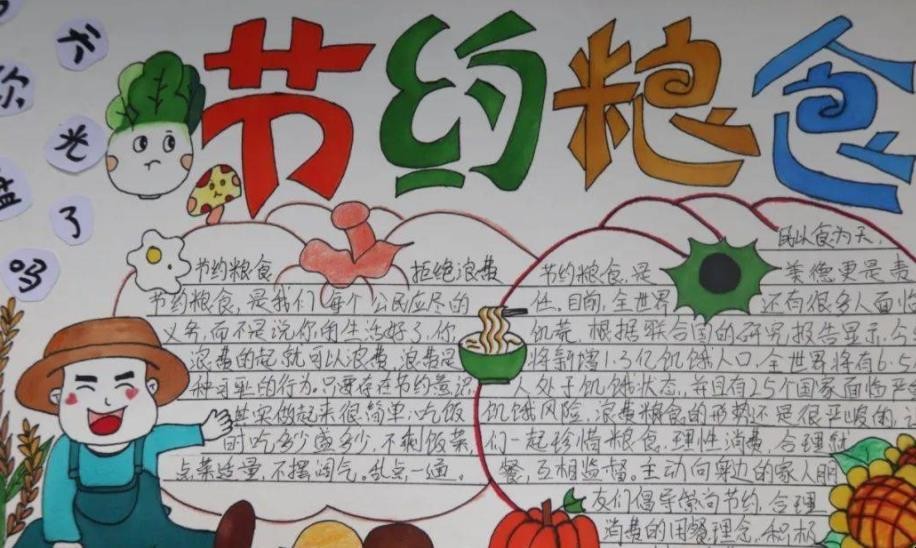 节约粮食
你
盘
了
吗
光
了
节约粮食
拒绝浪费
节约粮食,是我们每个公民应尽的
义务,而不是说你的生活好了,你
浪费的起就可以浪费,浪费是
种可耻的行为。只要存在节约意识,
其实做起来很简单:吃饭
时吃多少盛多少,不剩饭菜,
点菜适量,不摆阔气。乱点一通。
民以食为天,
节约粮食,是
美德更是责
任。目前,全世界
还有很多人面临
饥荒,根据联合国的研究报告显示,今
将新增1.3亿饥饿人口,全世界将有6.5
人处于饥饿状态,并且有25个国家面临严
饥饿风险,浪费粮食的形势还是很严峻的,让
们一起珍惜粮食,理性消费,合理
餐,互相监督。主动向身边的家人朋
友们倡导崇尚节约,合理
消费的用餐理念,积极